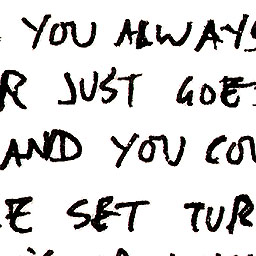 YOU ALWAYS
R JUST GOES
AND YOU COU
RE SET TUR